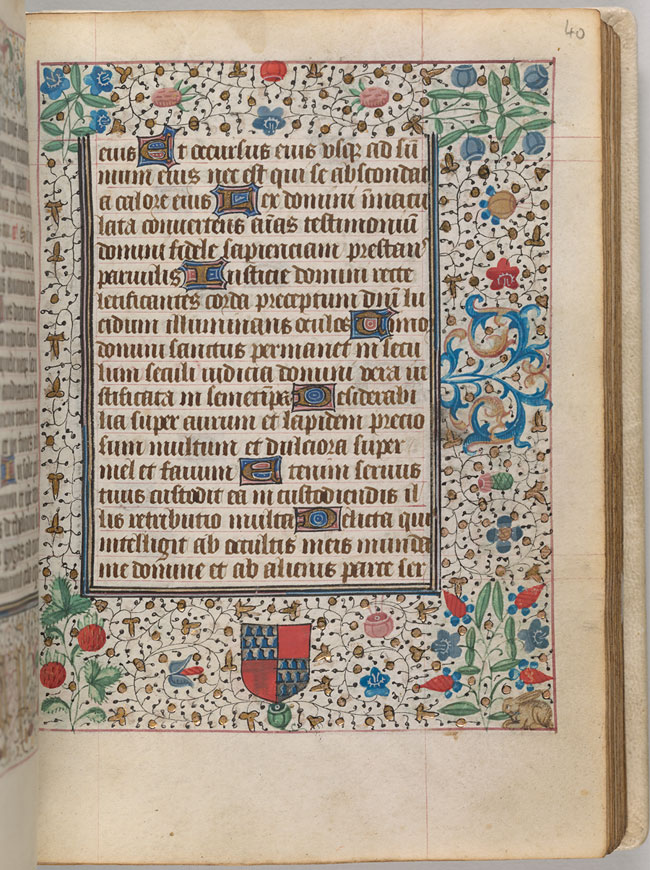 40
eius Et occursus eius vsqꝫ ad sū
mum eius nec est qui se abscondat
a calore eius Lex domini īmacu
lata convertens aīas testimoniū
domini fidele sapienciam prestans
paruulis Iusticie domini recte
letificantes corda preceptum dn̄i lu
cidum illuminans oculos Timor
domini sanctus permanet in secu
lum seculi iudicia domini vera iu
stificata in semetip̄a Desiderabi
lia super aurum et lapidem precio
sum multum et dulciora super
mel et fauum Etenim seruus
tuus custodit ea in custodiendis il
lis retributio multa Delicta qui
intelligit ab occultis meis munda
me domine et ab alienis parce ser